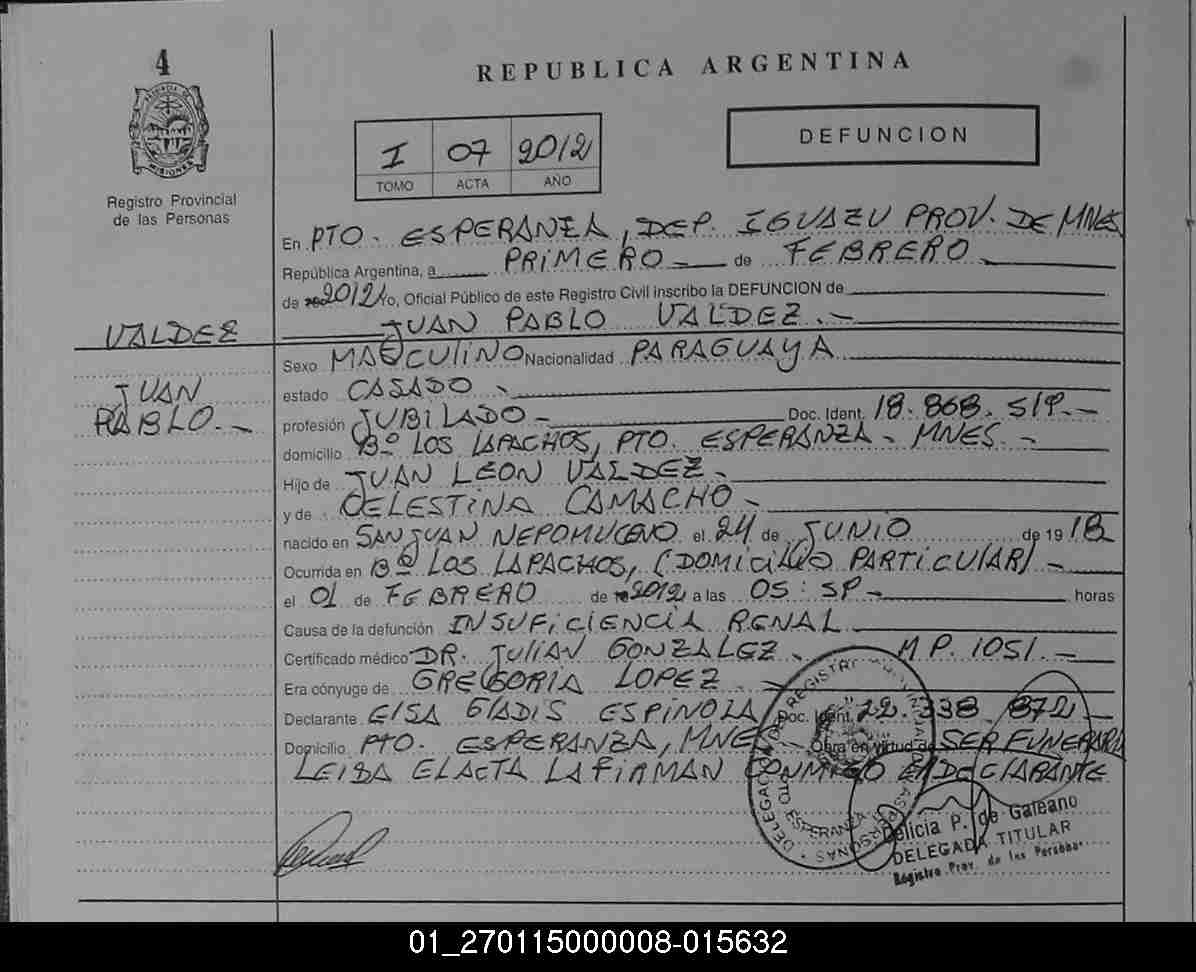 4
REPUBLICA ARGENTINA
I 07 2012
TOMO ACTA AÑO
DEFUNCION
MISIONES
Registro Provincial
de las Personas
En PTO. ESPERANZA, DEP. IGUAZU PROV. DE MNES
República Argentina, a PRIMERO - de FEBRERO -
de 2012 yo, Oficial Público de este Registro Civil inscribo la DEFUNCION de
JUAN PABLO VALDEZ. -
VALDEZ
JUAN
PABLO. -
Sexo MASCULINO Nacionalidad PARAGUAYA
estado CASADO -
profesión JUBILADO - Doc. Ident. 18.868.519. -
domicilio Bº LOS LAPACHOS, PTO. ESPERANZA - MNES. -
Hijo de JUAN LEON VALDEZ -
y de CELESTINA CAMACHO -
nacido en SAN JUAN NEPOMUCENO el 24 de JUNIO de 1918
Ocurrida en Bº LOS LAPACHOS, (DOMICILIO PARTICULAR) -
el 01 de FEBRERO de 2012 a las 05: horas
Causa de la defunción INSUFICIENCIA RENAL
Certificado médico DR. JULIAN GONZALEZ - M P. 1051. -
Era cónyuge de GREGORIA LOPEZ -
Declarante ELSA GLADIS ESPINOZA Doc. Ident. 22.338.872 -
Domicilio PTO. ESPERANZA, MNES - Obra en virtud de SER FUNERARIA
LEIDA EL ACTA LA FIRMAN CONMIGO EL DECLARANTE
DELEGACION REGISTRO PROVINCIAL DE LAS PERSONAS
PTO ESPERANZA
Delicia P. de Galeano
DELEGADA TITULAR
Registro Prov. de las Personas
01_270115000008-015632